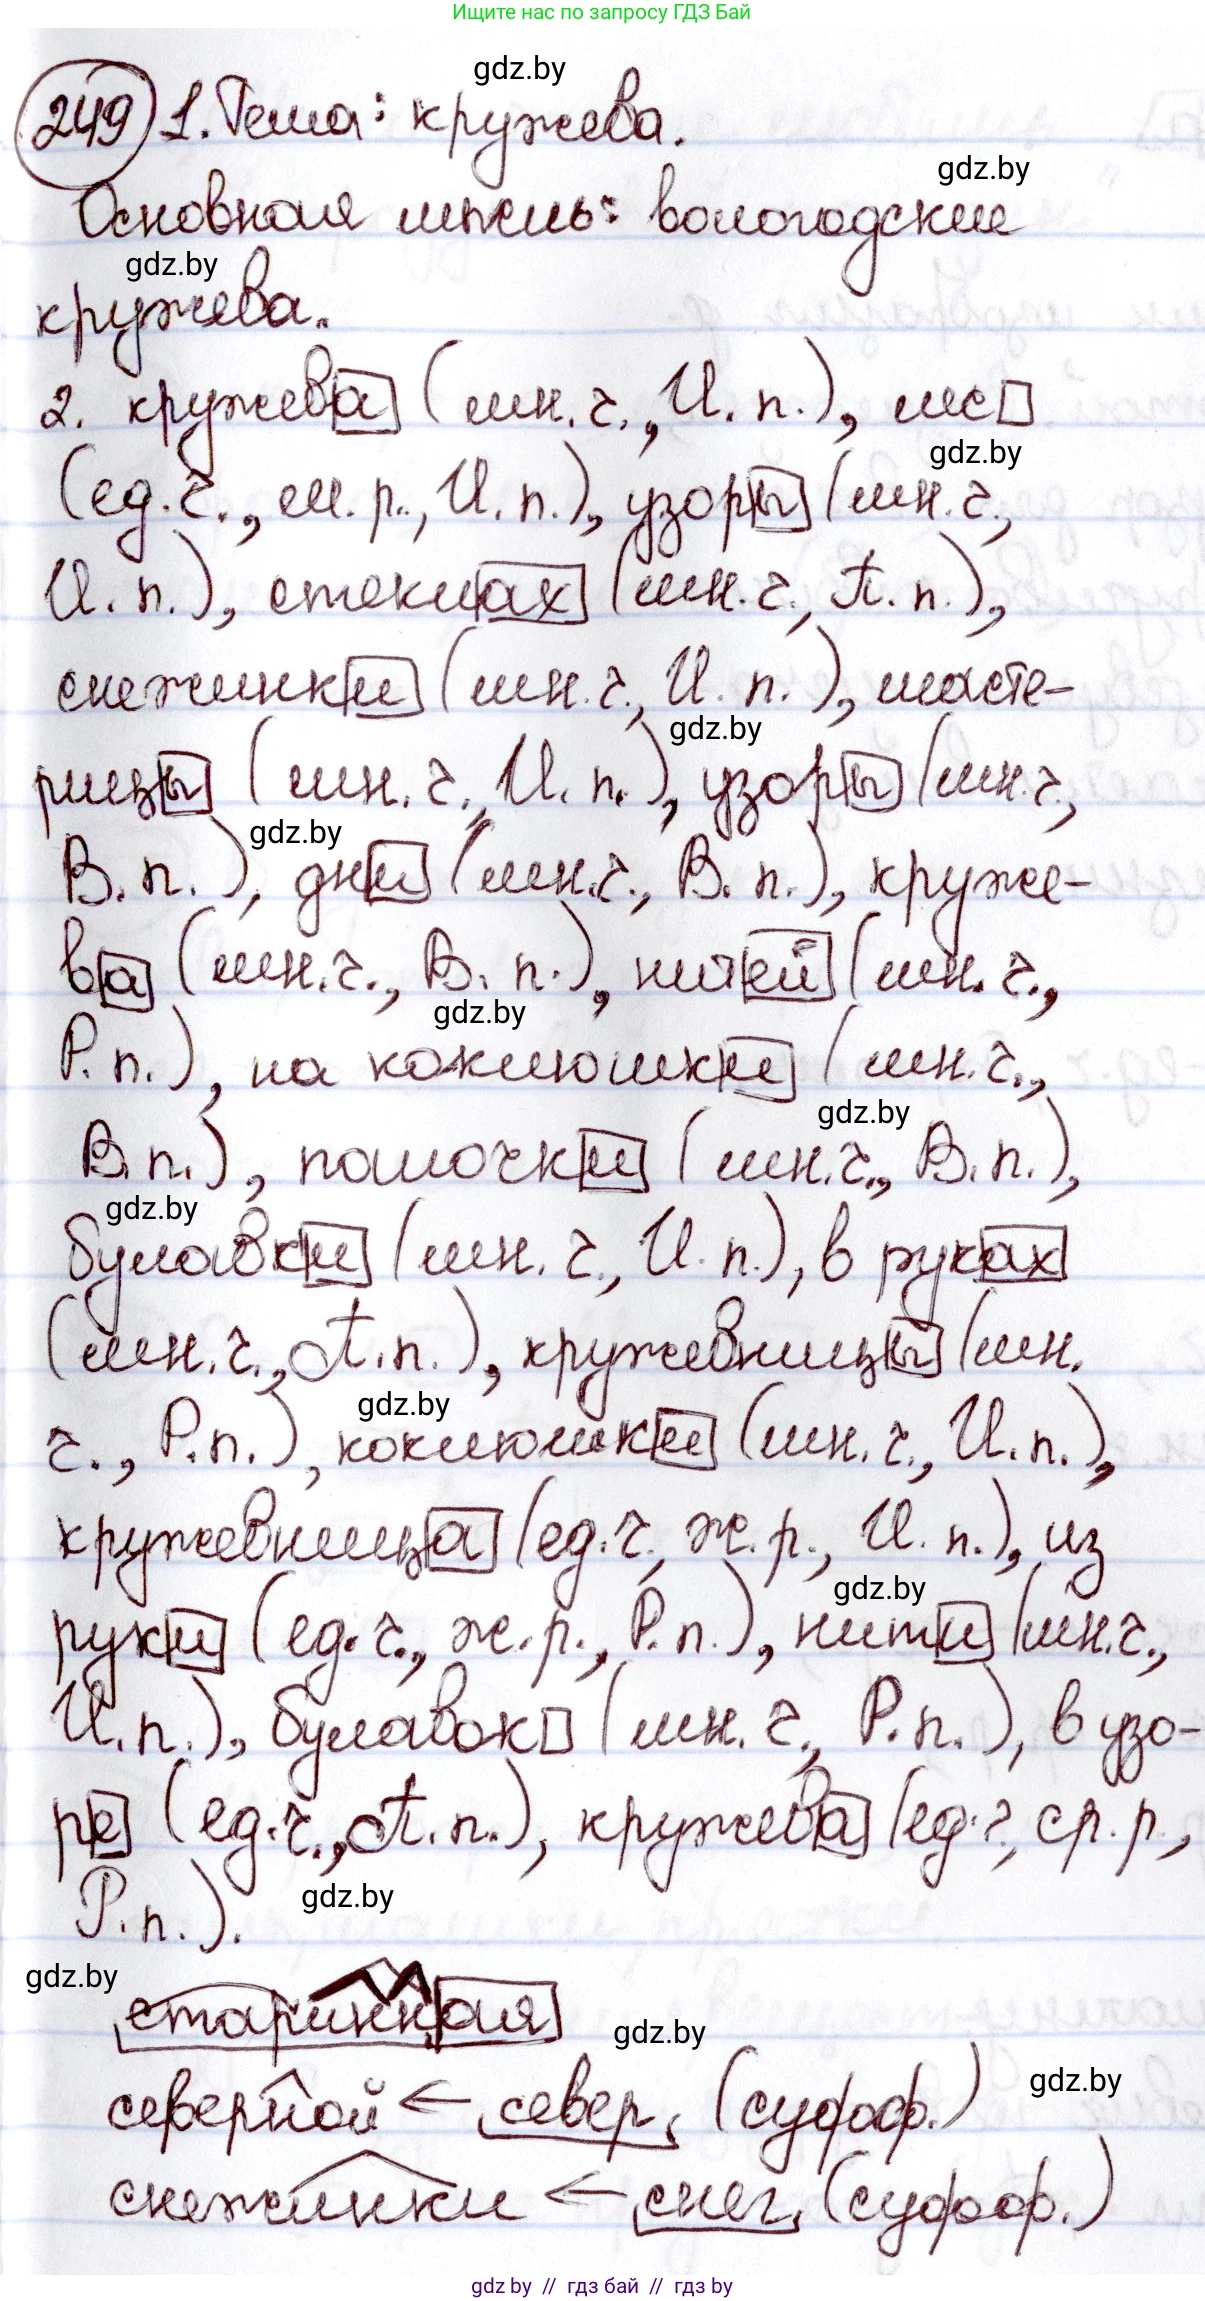 Ищите нас по запросу ГДЗ Бай
gdz.by
249 1. Тема: кружева.
gdz.by
Основная мысль: вологодские
gdz.by
кружева.
2. кружева (мн. ч., И. п.), лес
gdz.by
(ед. ч., м. р., И. п.), узоры (мн. ч.,
И. п.), стеклах (мн. ч., П. п.),
снежинки (мн. ч., И. п.), масте-
gdz.by
рицы (мн. ч., И. п.), узоры (мн. ч.,
gdz.by
В. п.), дни (мн. ч., В. п.), круже-
ва (мн. ч., В. п.), нитей (мн. ч.,
gdz.by
Р. п.), на коклюшки (мн. ч.,
gdz.by
В. п.), палочки (мн. ч., В. п.),
gdz.by
булавки (мн. ч., И. п.), в руках
(мн. ч., П. п.), кружевницы (мн.
gdz.by
ч., Р. п.), коклюшки (мн. ч., И. п.),
кружевница (ед. ч., ж. р., И. п.), из
gdz.by
руки (ед. ч., ж. р., Р. п.), нити (мн. ч.,
И. п.), булавок (мн. ч., Р. п.), в узо-
ре (ед. ч., П. п.), кружева (ед. ч., ср. р.,
gdz.by
Р. п.).
gdz.by
старинная
gdz.by
gdz.by
северной ← север (суфф.)
снежинки ← снег (суфф.)
gdz by // гдз бай // гдз by